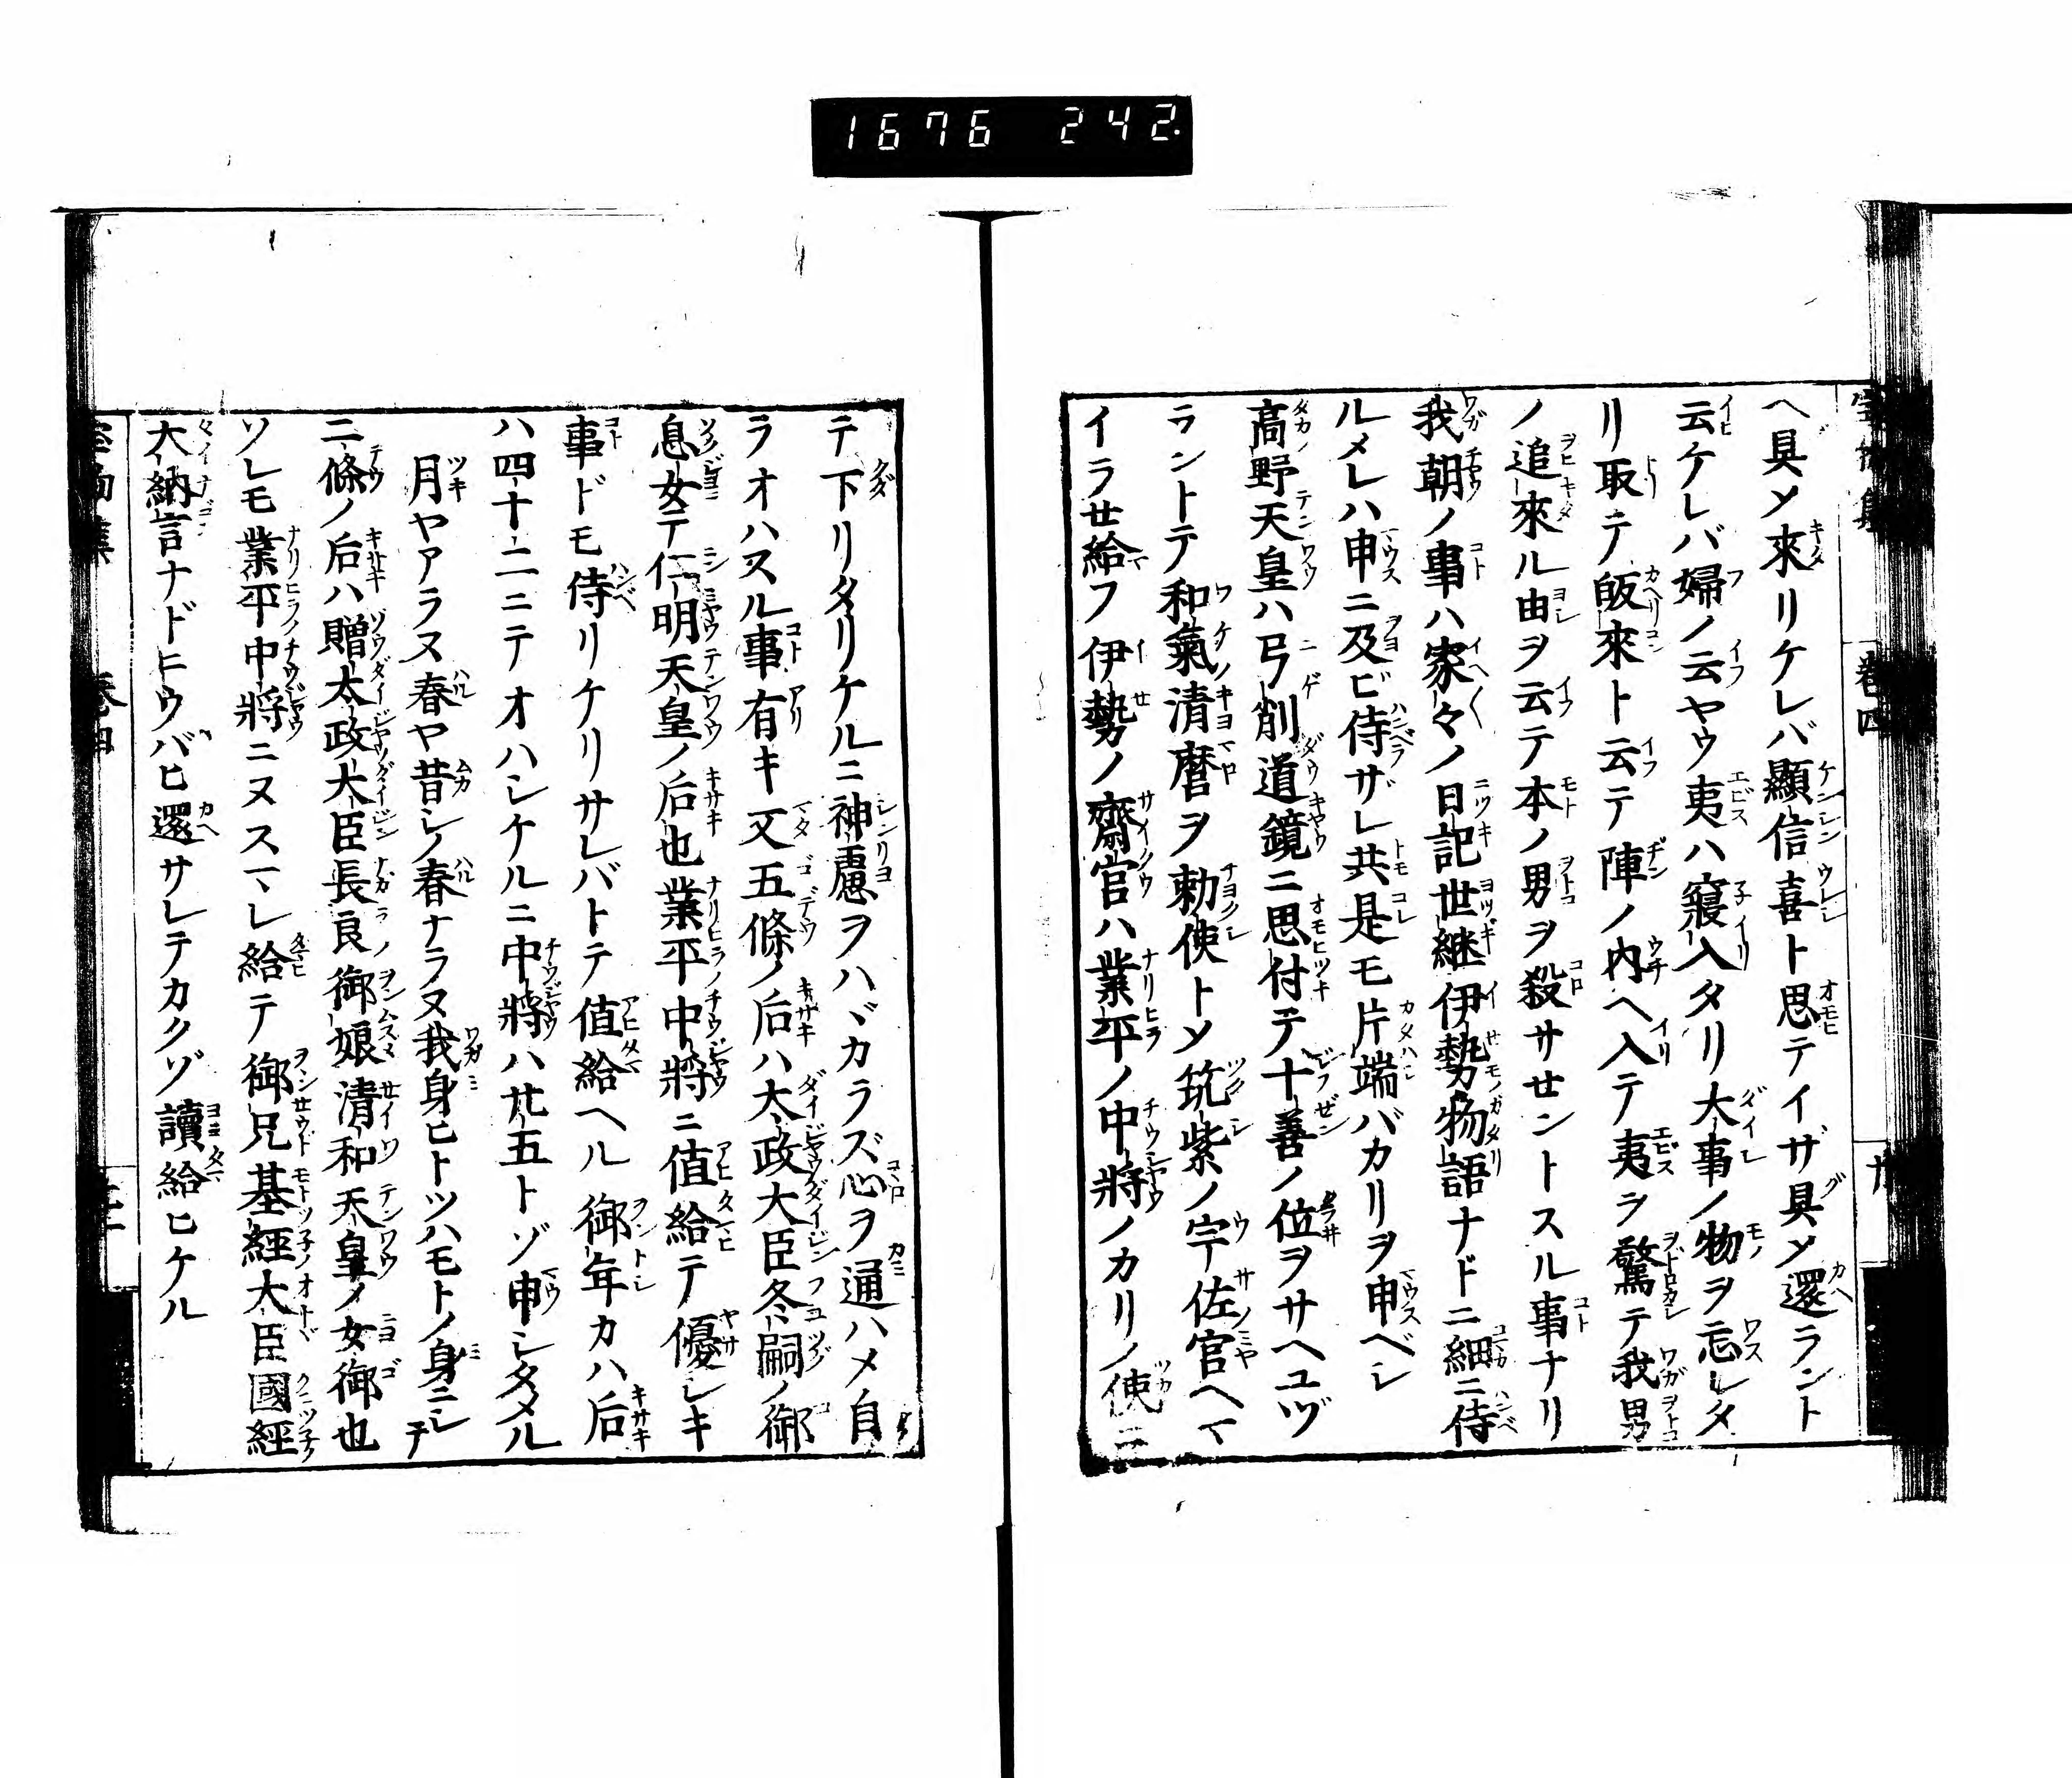 1676 242.
ヘ具〆來リケレバ顯信喜ト思テイザ具〆還ラント
云ケレバ婦ノ云ヤウ夷ハ寢入タリ大事ノ物ヲ忘レタ
リ取テ皈來ト云テ陣ノ内ヘ入テ夷ヲ驚テ我男
ノ追來ル由ヲ云テ本ノ男ヲ殺サセントスル事ナリ
我朝ノ事ハ家々ノ日記世継伊勢物語ナドニ細ニ侍
ルメレハ申ニ及ビ侍ザレ共是モ片端バカリヲ申ベシ
高野天皇ハ弓削道鏡ニ思付テ十善ノ位ヲサヘユヅ
ラントテ和氣清麿ヲ勅使ト〆筑紫ノ宇佐宮ヘマ
イラせ給フ伊勢ノ齋宮ハ業平ノ中將ノカリノ使ニ
テ下リタリケルニ神慮ヲハヾカラズ心ヲ通ハメ自
ラオハスル事有キ又五條ノ后ハ大政大臣冬嗣ノ御
息女テ仁明天皇ノ后也業平中將ニ値給テ優レキ
事ドモ侍リケリサレバトテ値給ヘル御年カハ后
ハ四十二ニテオハシケルニ中將ハ廿五トゾ申シタメル
月ヤアラヌ春ヤ昔シノ春ナラヌ我身ヒトツハモトノ身ニシテ
二條ノ后ハ贈太政大臣長良御娘清和天皇ノ女御也
ソレモ業平中將ニヌスマレ給テ御兄基經大臣國経
大納言ナドニウバヒ還サレテカクゾ讀給ヒケル